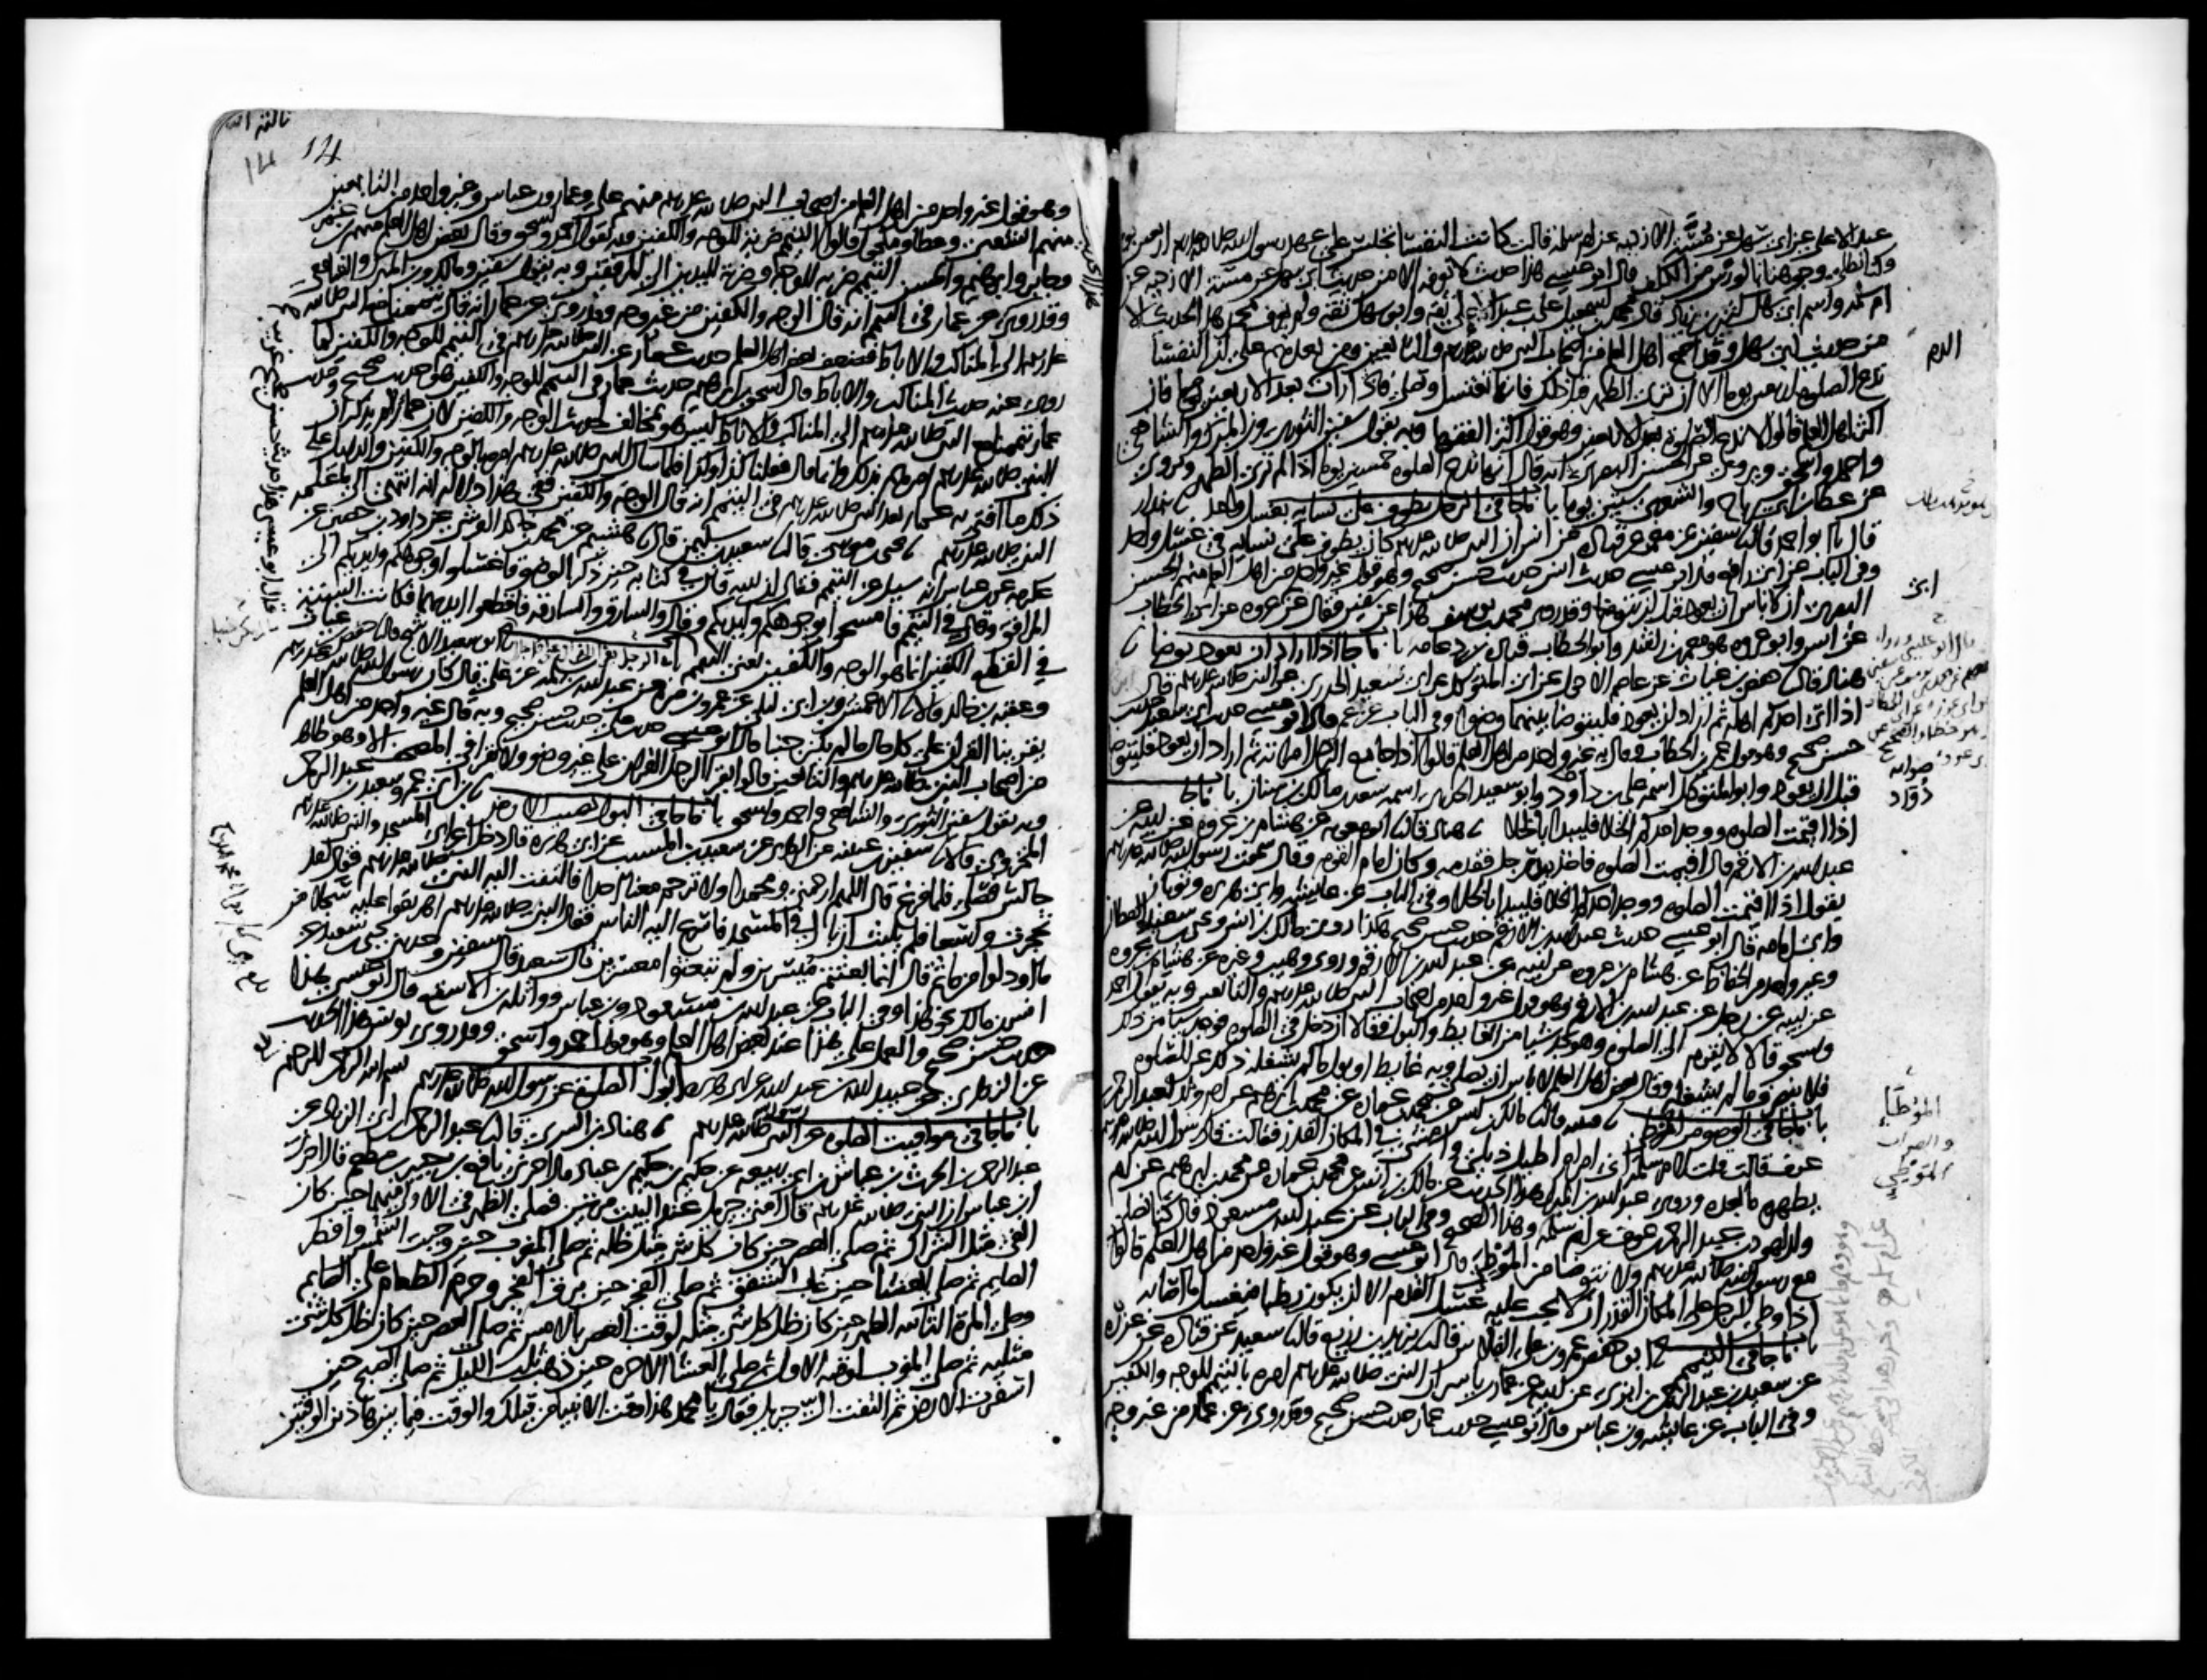 عبد الاعلى عن ابى سهل عن مسة الازدية عن ام سلمة قالت كانت النفسا تجلس على عهد رسول الله صلى الله عليه وسلم اربعين يوما
وكنا نطلى وجوهنا بالورس من الكلف قال ابو عيسى هذا حديث لا نعرفه الا من حديث ابى سهل عن مسة الازدية عن
ام سلمة واسم ابى سهل كثير بن زياد قال محمد بن اسمعيل على بن عبد الاعلى ثقة وابو سهل ثقة ولم يعرف محمد هذا الحديث الا
من حديث ابى سهل وقد اجمع اهل العلم من اصحاب النبى صلى الله عليه وسلم والتابعين ومن بعدهم على ان النفسا
تدع الصلوة اربعين يوما الا ان ترى الطهر قبل ذلك فانها تغتسل وتصلى فاذا رات بعد الاربعين فان
اكثر اهل العلم قالوا لا تدع الصلوة بعد الاربعين وهو قول اكثر الفقها وبه يقول سفين الثورى وابن المبرك والشافعى
واحمد واسحق ويروى عن الحسن البصرى انه قال انها تدع الصلوة خمسين يوما اذا لم ترى الطهر ويروى
عن عطا بن ابى رباح والشعبى ستين يوما باب ما جا فى الرجل يطوف على نسايه بغسل واحد بندار
قال ابو احمد قال سفين عن معمر عن قتادة عن انس ان النبى صلى الله عليه وسلم كان يطوف على نسايه فى غسل واحد
وفى الباب عن ابى رافع قال ابو عيسى حديث انس حديث حسن صحيح وهو قول غير واحد من اهل العلم منهم الحسن
البصرى ان لا باس ان يعود قبل ان يتوضا وقد روى محمد بن يوسف هذا عن سفين فقال عن ابى عروة عن ابى الخطاب
عن انس وابو عروة هو معمر بن راشد وابو الخطاب قتادة بن دعامة باب ما جا اذا اراد ان يعود توضا
هناد قال حفص بن غياث عن عاصم الاحول عن ابى المتوكل عن ابى سعيد الخدرى عن النبى صلى الله عليه وسلم قال
اذا اتى احدكم اهله ثم اراد ان يعود فليتوضا بينهما وضوا وفى الباب عن عمر قال ابو عيسى حديث ابى سعيد حديث
حسن صحيح وهو قول عمر بن الخطاب وقال به غير واحد من اهل العلم قالوا اذا جامع الرجل امراته ثم اراد ان يعود فليتوضا
قبل ان يعود وابو المتوكل اسمه على بن داود وابو سعيد الخدرى اسمه سعد بن مالك بن سنان باب ما جا
اذا اقيمت الصلوة ووجد احدكم الخلا فليبدا بالخلا هناد قال ابو معوية عن هشام بن عروة عن ابيه عن
عبد الله بن الارقم قال اقيمت الصلوة فاخذ بيد رجل فقدمه وكان امام القوم وقال سمعت رسول الله صلى الله عليه وسلم
يقول اذا اقيمت الصلوة ووجد احدكم الخلا فليبدا بالخلا وفى الباب عن عايشة وابى هريرة وثوبان
وابى امامة قال ابو عيسى حديث عبد الله بن الارقم حديث حسن صحيح هكذا روى مالك بن انس ويحيى بن سعيد القطان
وغير واحد من الحفاظ عن هشام بن عروة عن ابيه عن عبد الله بن الارقم وروى وهيب وغيره عن هشام بن عروة
عن ابيه عن رجل عن عبد الله بن الارقم وهو قول غير واحد من اصحاب النبى صلى الله عليه وسلم والتابعين وبه يقول احمد
واسحق قالا لا يقوم الى الصلوة وهو يجد شيا من الغايط والبول فقالا ان دخل فى الصلوة فوجد شيا من ذلك
فلا ينصرف ما لم يشغله وقال بعض اهل العلم لا باس ان يصلى وبه غايط او بول ما لم يشغله ذلك عن الصلوة
باب ما جا فى الوضو من الموطى قتيبة قال مالك بن انس عن محمد بن عمارة عن محمد بن ابرهيم عن ام ولد لعبد الرحمن
بن عوف قالت قلت لام سلمة انى امراة اطيل ذيلى وامشى فى المكان القذر فقالت قال رسول الله صلى الله عليه وسلم
يطهره ما بعده وروى عبد الله بن المبرك هذا الحديث عن مالك بن انس عن محمد بن عمارة عن محمد بن ابرهيم عن ام
ولد لهود بن عبد الرحمن بن عوف عن ام سلمة وهذا الصحيح وفى الباب عن عبد الله بن مسعود قال كنا نصلى
مع رسول الله صلى الله عليه وسلم ولا نتوضا من الموطى قال ابو عيسى وهو قول غير واحد من اهل العلم قالوا
اذا وطى الرجل على المكان القذر ان لا يجب عليه غسل القدم الا ان يكون رطبا فيغسل ما اصابه
باب ما جا فى التيمم ابو حفص عمرو بن على الفلاس قال يزيد بن زريع قال سعيد عن قتادة عن عزرة
عن سعيد بن عبد الرحمن بن ابزى عن ابيه عن عمار بن ياسر ان النبى صلى الله عليه وسلم امره بالتيمم للوجه والكفين
وفى الباب عن عايشة وبن عباس قال ابو عيسى حديث عمار حديث حسن صحيح وقد روى عن عمار من غير وجه
الدم
ابن
صوابه
دؤاد
الموطا
والصواب
الموطى
14
وهو قول غير واحد من اهل العلم من اصحاب النبى صلى الله عليه وسلم منهم على وعمار وبن عباس وغير واحد من التابعين
منهم الشعبى وعطا ومكحول قالوا التيمم ضربة للوجه والكفين وبه يقول احمد واسحق وقال بعض اهل العلم منهم بن عمر
وجابر وابرهيم والحسن التيمم ضربة للوجه وضربة لليدين الى المرفقين وبه يقول سفين ومالك وبن المبرك والشافعى
وقد روى عن عمار فى التيمم انه قال الوجه والكفين من غير وجه وقد روى عن عمار انه قال تيممنا مع النبى صلى الله
عليه وسلم الى المناكب والاباط فضعف بعض اهل العلم حديث عمار عن النبى صلى الله عليه وسلم فى التيمم للوجه والكفين لما
روى عنه حديث المناكب والاباط قال اسحق بن ابرهيم حديث عمار فى التيمم للوجه والكفين هو حديث صحيح وحديث
عمار تيممنا مع النبى صلى الله عليه وسلم الى المناكب والاباط ليس هو بمخالف لحديث الوجه والكفين لان عمارا لم يذكر ان
النبى صلى الله عليه وسلم امرهم بذلك وانما قال فعلنا كذا وكذا فلما سال النبى صلى الله عليه وسلم امره بالوجه والكفين والدليل على
ذلك ما افتى به عمار بعد النبى صلى الله عليه وسلم فى التيمم انه قال الوجه والكفين ففى هذا دلالة انه انتهى الى ما علمه
النبى صلى الله عليه وسلم يحيى بن موسى قال سعيد بن سليمن قال هشيم عن محمد بن خالد القرشى عن داود بن حصين عن
عكرمة عن بن عباس انه سيل عن التيمم فقال ان الله قال فى كتابه حين ذكر الوضو فاغسلوا وجوهكم وايديكم الى
المرافق وقال فى التيمم فامسحوا بوجوهكم وايديكم وقال والسارق والسارقة فاقطعوا ايديهما فكانت السنة
فى القطع الكفين انما هو الوجه والكفين يعنى التيمم باب ابو سعيد الاشج قال حفص بن غياث
وعقبة بن خالد قالا الاعمش وبن ابى ليلى عن عمرو بن مرة عن عبد الله بن سلمة عن على قال كان رسول الله صلى الله عليه وسلم
يقرينا القران على كل حال ما لم يكن جنبا قال ابو عيسى حديث على حديث حسن صحيح وبه قال غير واحد من اهل العلم
من اصحاب النبى صلى الله عليه وسلم والتابعين قالوا يقرا الرجل القران على غير وضو ولا يقرا فى المصحف الا وهو طاهر
وبه يقول سفين الثورى والشافعى واحمد واسحق باب ما جا فى البول يصيب الارض بن ابى عمر وسعيد بن عبد الرحمن
المخزومى قالا سفين بن عيينة عن الزهرى عن سعيد بن المسيب عن ابى هريرة قال دخل اعرابى المسجد والنبى صلى الله عليه وسلم
جالس فصلى فلما فرغ قال اللهم ارحمنى ومحمدا ولا ترحم معنا احدا فالتفت اليه النبى صلى الله عليه وسلم فقال لقد
تحجرت واسعا فلم يلبث ان بال فى المسجد فاسرع اليه الناس فقال النبى صلى الله عليه وسلم اهريقوا عليه سجلا من
ما او دلوا من ما ثم قال انما بعثتم ميسرين ولم تبعثوا معسرين قال سعيد قال سفين وحدثنى يحيى بن سعيد عن
انس بن مالك نحو هذا وفى الباب عن عبد الله بن مسعود وبن عباس وواثلة بن الاسقع قال ابو عيسى هذا
حديث حسن صحيح والعمل على هذا عند بعض اهل العلم وهو قول احمد واسحق وقد روى يونس هذا الحديث
عن الزهرى عن عبيد الله بن عبد الله عن ابى هريرة ابواب الصلوة عن رسول الله صلى الله عليه وسلم بسم الله الرحمن الرحيم
باب ما جا فى مواقيت الصلوة عن النبى صلى الله عليه وسلم هناد بن السرى قال عبد الرحمن بن ابى الزناد عن
عبد الرحمن بن الحرث بن عياش بن ابى ربيعة عن حكيم بن حكيم بن عباد قال اخبرنى نافع بن جبير بن مطعم قال اخبرنى
ابن عباس ان النبى صلى الله عليه وسلم قال امنى جبريل عند البيت مرتين فصلى الظهر فى الاولى منهما حين كان
الفى مثل الشراك ثم صلى العصر حين كان كل شى مثل ظله ثم صلى المغرب حين وجبت الشمس وافطر
الصايم ثم صلى العشا حين غاب الشفق ثم صلى الفجر حين برق الفجر وحرم الطعام على الصايم
وصلى المرة الثانية الظهر حين كان ظل كل شى مثله لوقت العصر بالامس ثم صلى العصر حين كان ظل كل شى
مثليه ثم صلى المغرب لوقته الاول ثم صلى العشا الاخرة حين ذهب ثلث الليل ثم صلى الصبح حين
اسفرت الارض ثم التفت الى جبريل فقال يا محمد هذا وقت الانبيا من قبلك والوقت فيما بين هاذين الوقتين
قال ابو عيسى هذا حديث حسن صحيح غريب